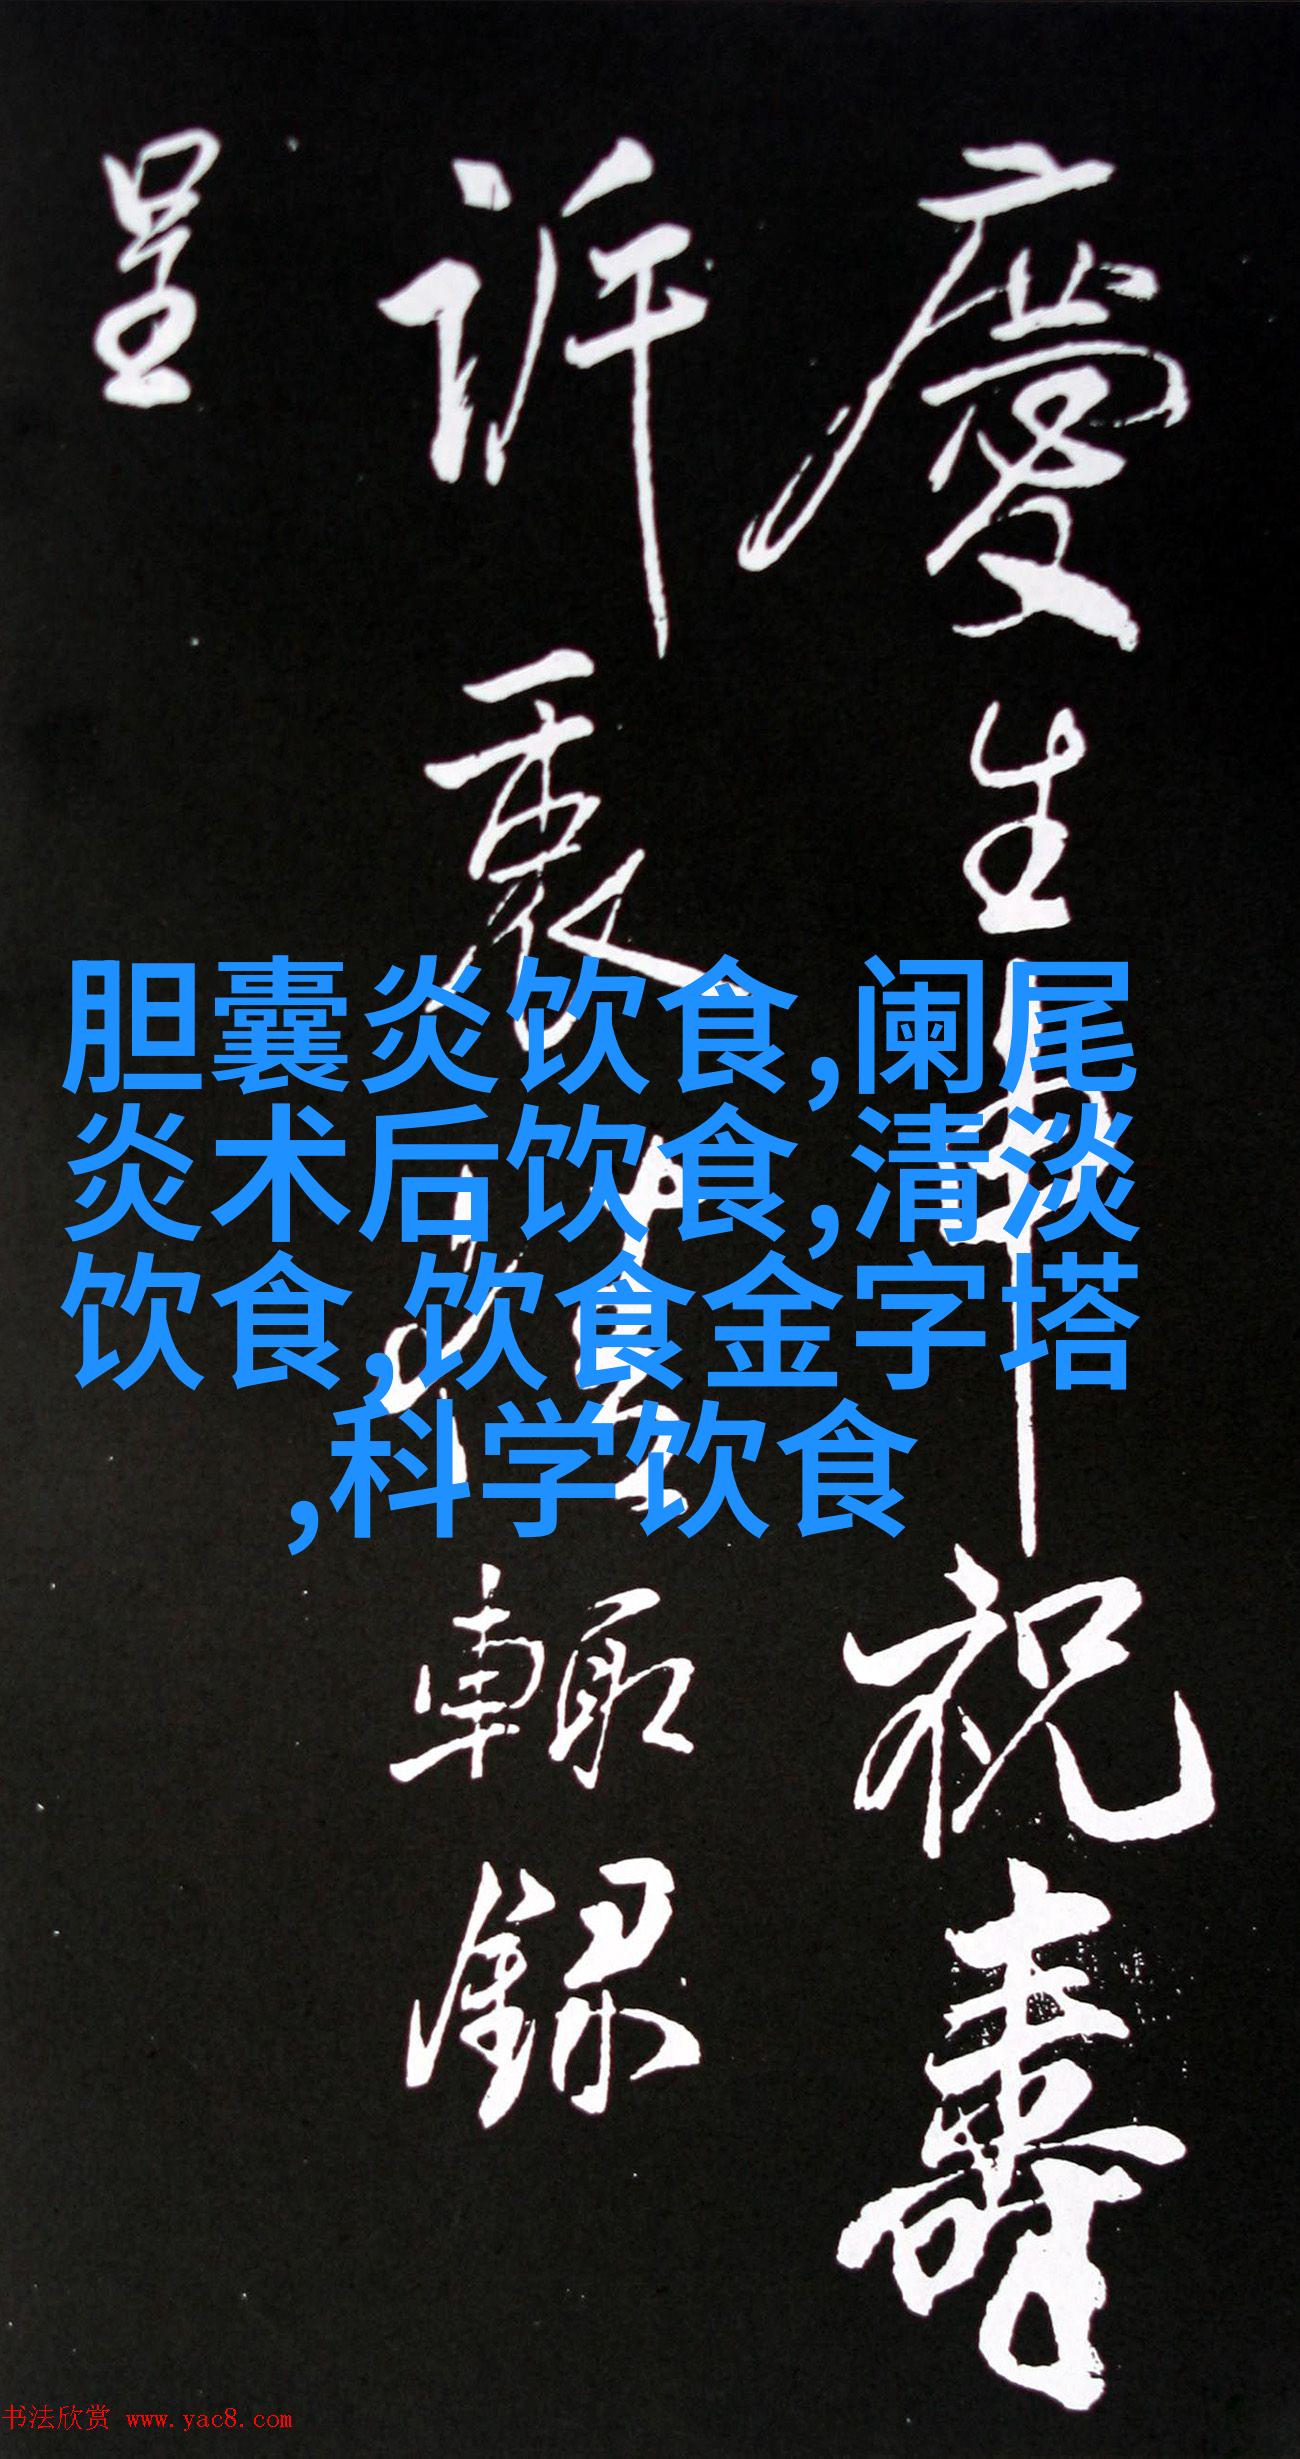 慶生申祝壽
訴衷情輒錄
呈
胆囊炎饮食,阑尾
炎术后饮食,清淡
饮食,饮食金字塔
,科学饮食
书法欣赏 www.yac8.com